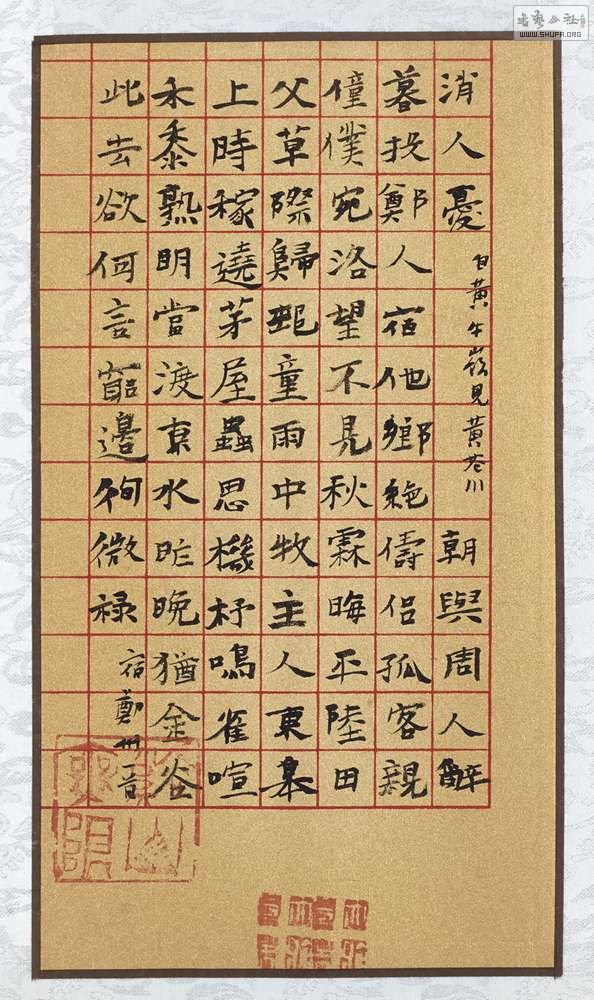 消人憂 自黃牛嶺見黃花川 朝與周人辭
暮投鄭人宿他鄉絶儔侶孤客親
僮僕宛洛望不見秋霖晦平陸田
父草際歸邨童雨中牧主人東皋
上時稼遶茅屋蟲思機杼鳴雀喧
禾黍熟明當渡京水昨晚猶金谷
此去欲何言窮邊徇微祿 宿鄭州一首
書藝公社
WWW.SHUFA.ORG